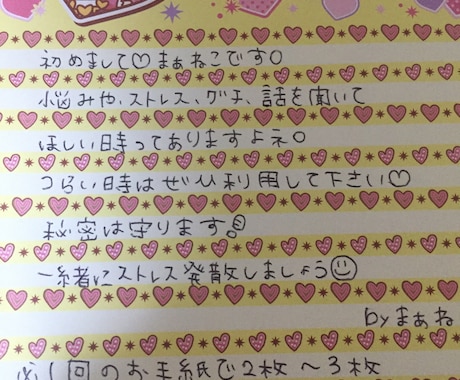 初めまして♡まぁねこです○
悩みや、ストレス、グチ、話を聞いて
ほしい時ってありますよネ○
つらい時はぜひ利用して下さい♡
秘密は守ります!
一緒にストレス発散しましょう☺
byまぁね
1回のお手紙で2枚～3枚